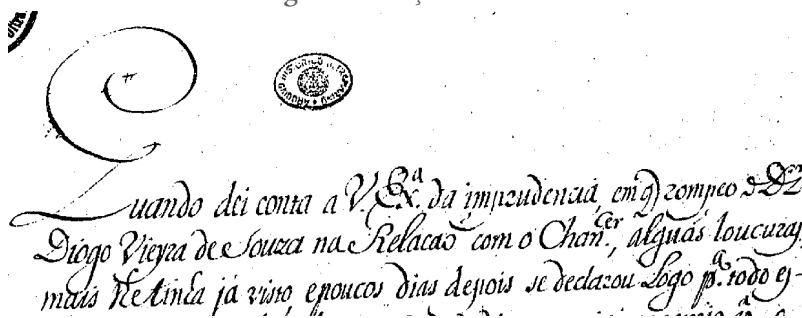 ARQUIVO HISTORICO ULTRAMARINO
Quando dei conta a V. Exª. da imprudencia, em q̃ rompeo o Dor.
Diogo Vieyra de Souza na Relacaõ com o Chancer., alguãs loucuras
mais lhe tinha já visto e poucos dias depois se declarou Logo pª. todo es-